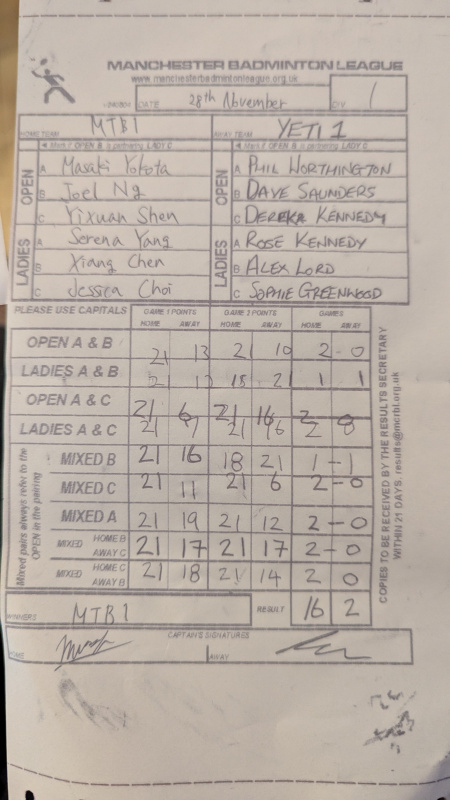 MANCHESTER BADMINTON LEAGUE
www.manchesterbadmintonleague.org.uk
DATE 28th November DIV 1
HOME TEAM MTB1 AWAY TEAM YETI 1
Mark if OPEN A is partnering LADY C Mark if OPEN A is partnering LADY C
OPEN A Masaki Yokota OPEN A PHIL WORTHINGTON
B Joel Ng B DAVE SAUNDERS
C Yixuan Shen C DEREKA KENNEDY
LADIES A Serena Yang LADIES A ROSE KENNEDY
B Xiang Chen B ALEX LORD
C Jessica Choi C SOPHIE GREENWOOD
PLEASE USE CAPITALS GAME 1 POINTS GAME 2 POINTS GAMES
HOME AWAY HOME AWAY HOME AWAY
OPEN A & B 21 13 21 10 2-0
LADIES A & B 21 18 21 1 1
OPEN A & C 21 6 21 16 2
LADIES A & C 21 21 16 2
Mixed pairs always refer to the OPEN in the pairing
MIXED B 21 16 18 21 1-1
MIXED C 21 11 21 6 2-0
MIXED A 21 19 21 12 2-0
MIXED HOME B AWAY C 21 17 21 17 2-0
MIXED HOME C AWAY B 21 18 21 14 2 0
COPIES TO BE RECEIVED BY THE RESULTS SECRETARY
WITHIN 21 DAYS. results@mcrbl.org.uk
WINNERS MTB1 RESULT 16 2
CAPTAIN'S SIGNATURES
HOME AWAY